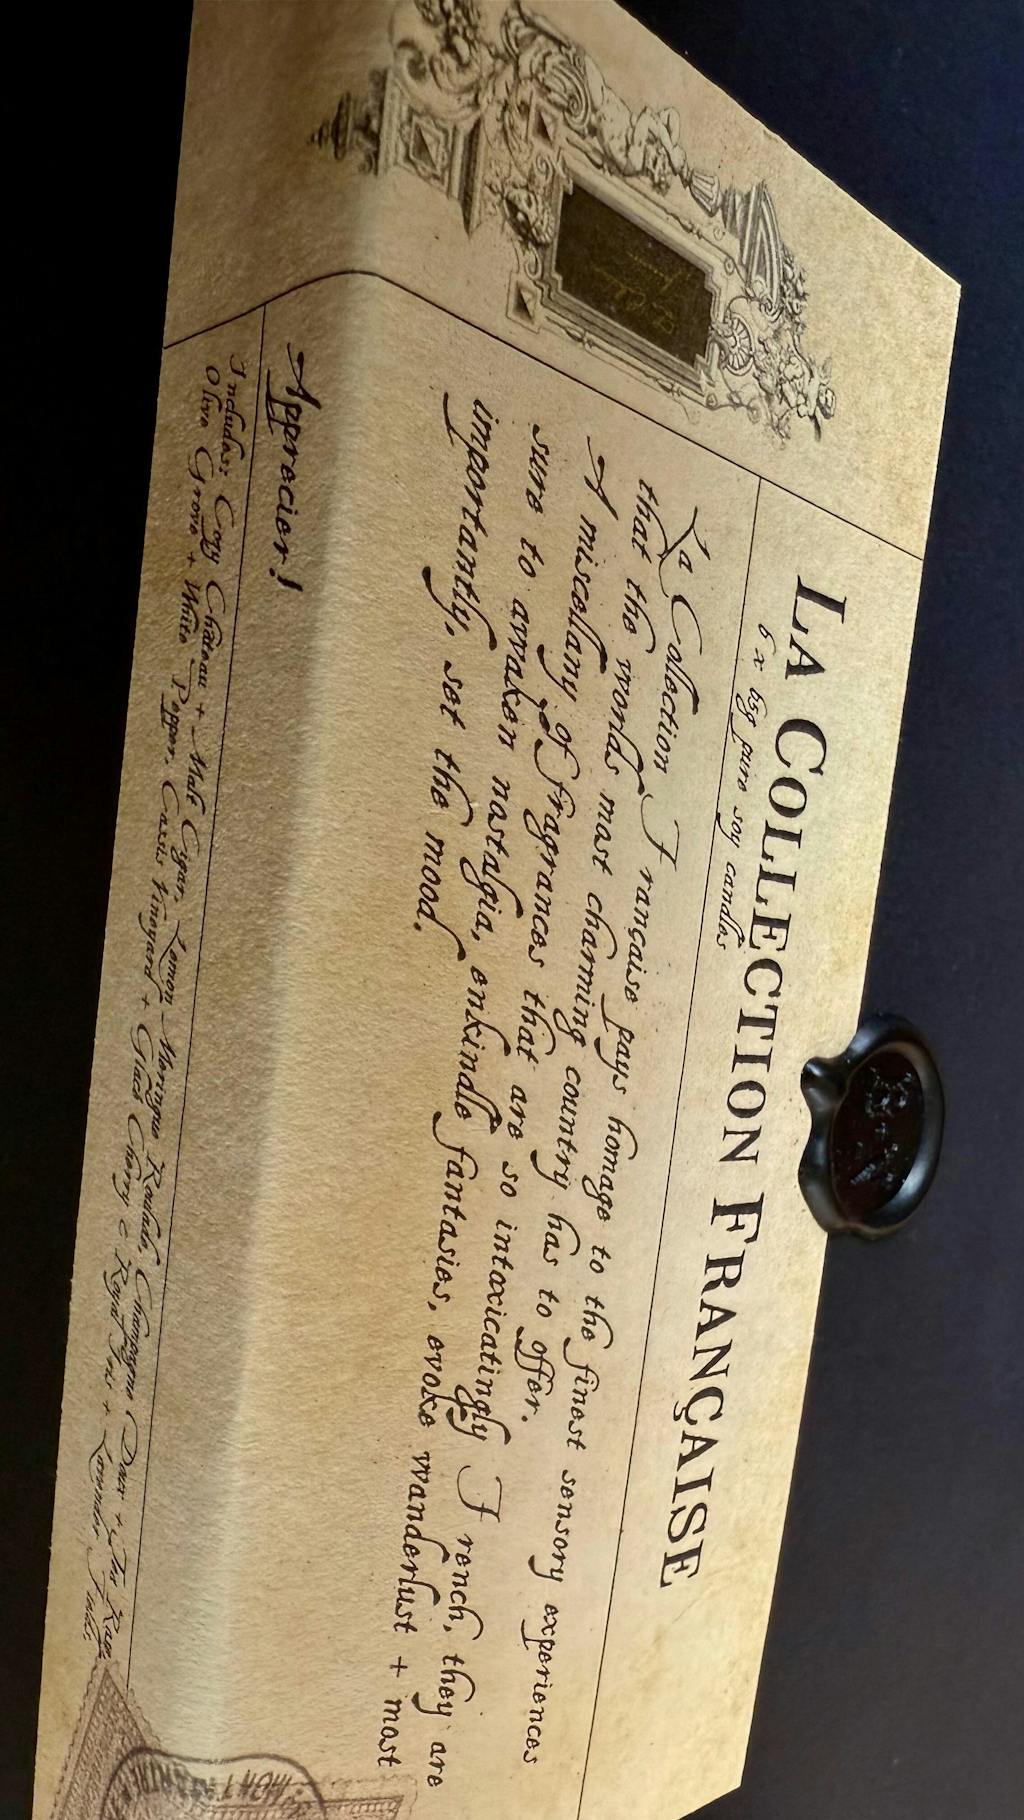 LA COLLECTION FRANÇAISE
6 x 65g pure soy candles
La Collection Française pays homage to the finest sensory experiences
that the worlds most charming country has to offer.
A miscellany of fragrances that are so intoxicatingly French, they are
sure to awaken nostalgia, enkindle fantasies, evoke wanderlust + most
importantly, set the mood.
Apprecier!
Includes: Cosy Château + Malt Cigar, Lemon Meringue Roulade, Champagne Doux +
Olive Grove + White Pepper, Cassis Vineyard + Glacé Cherry & Royal Iris + Lavender Fields